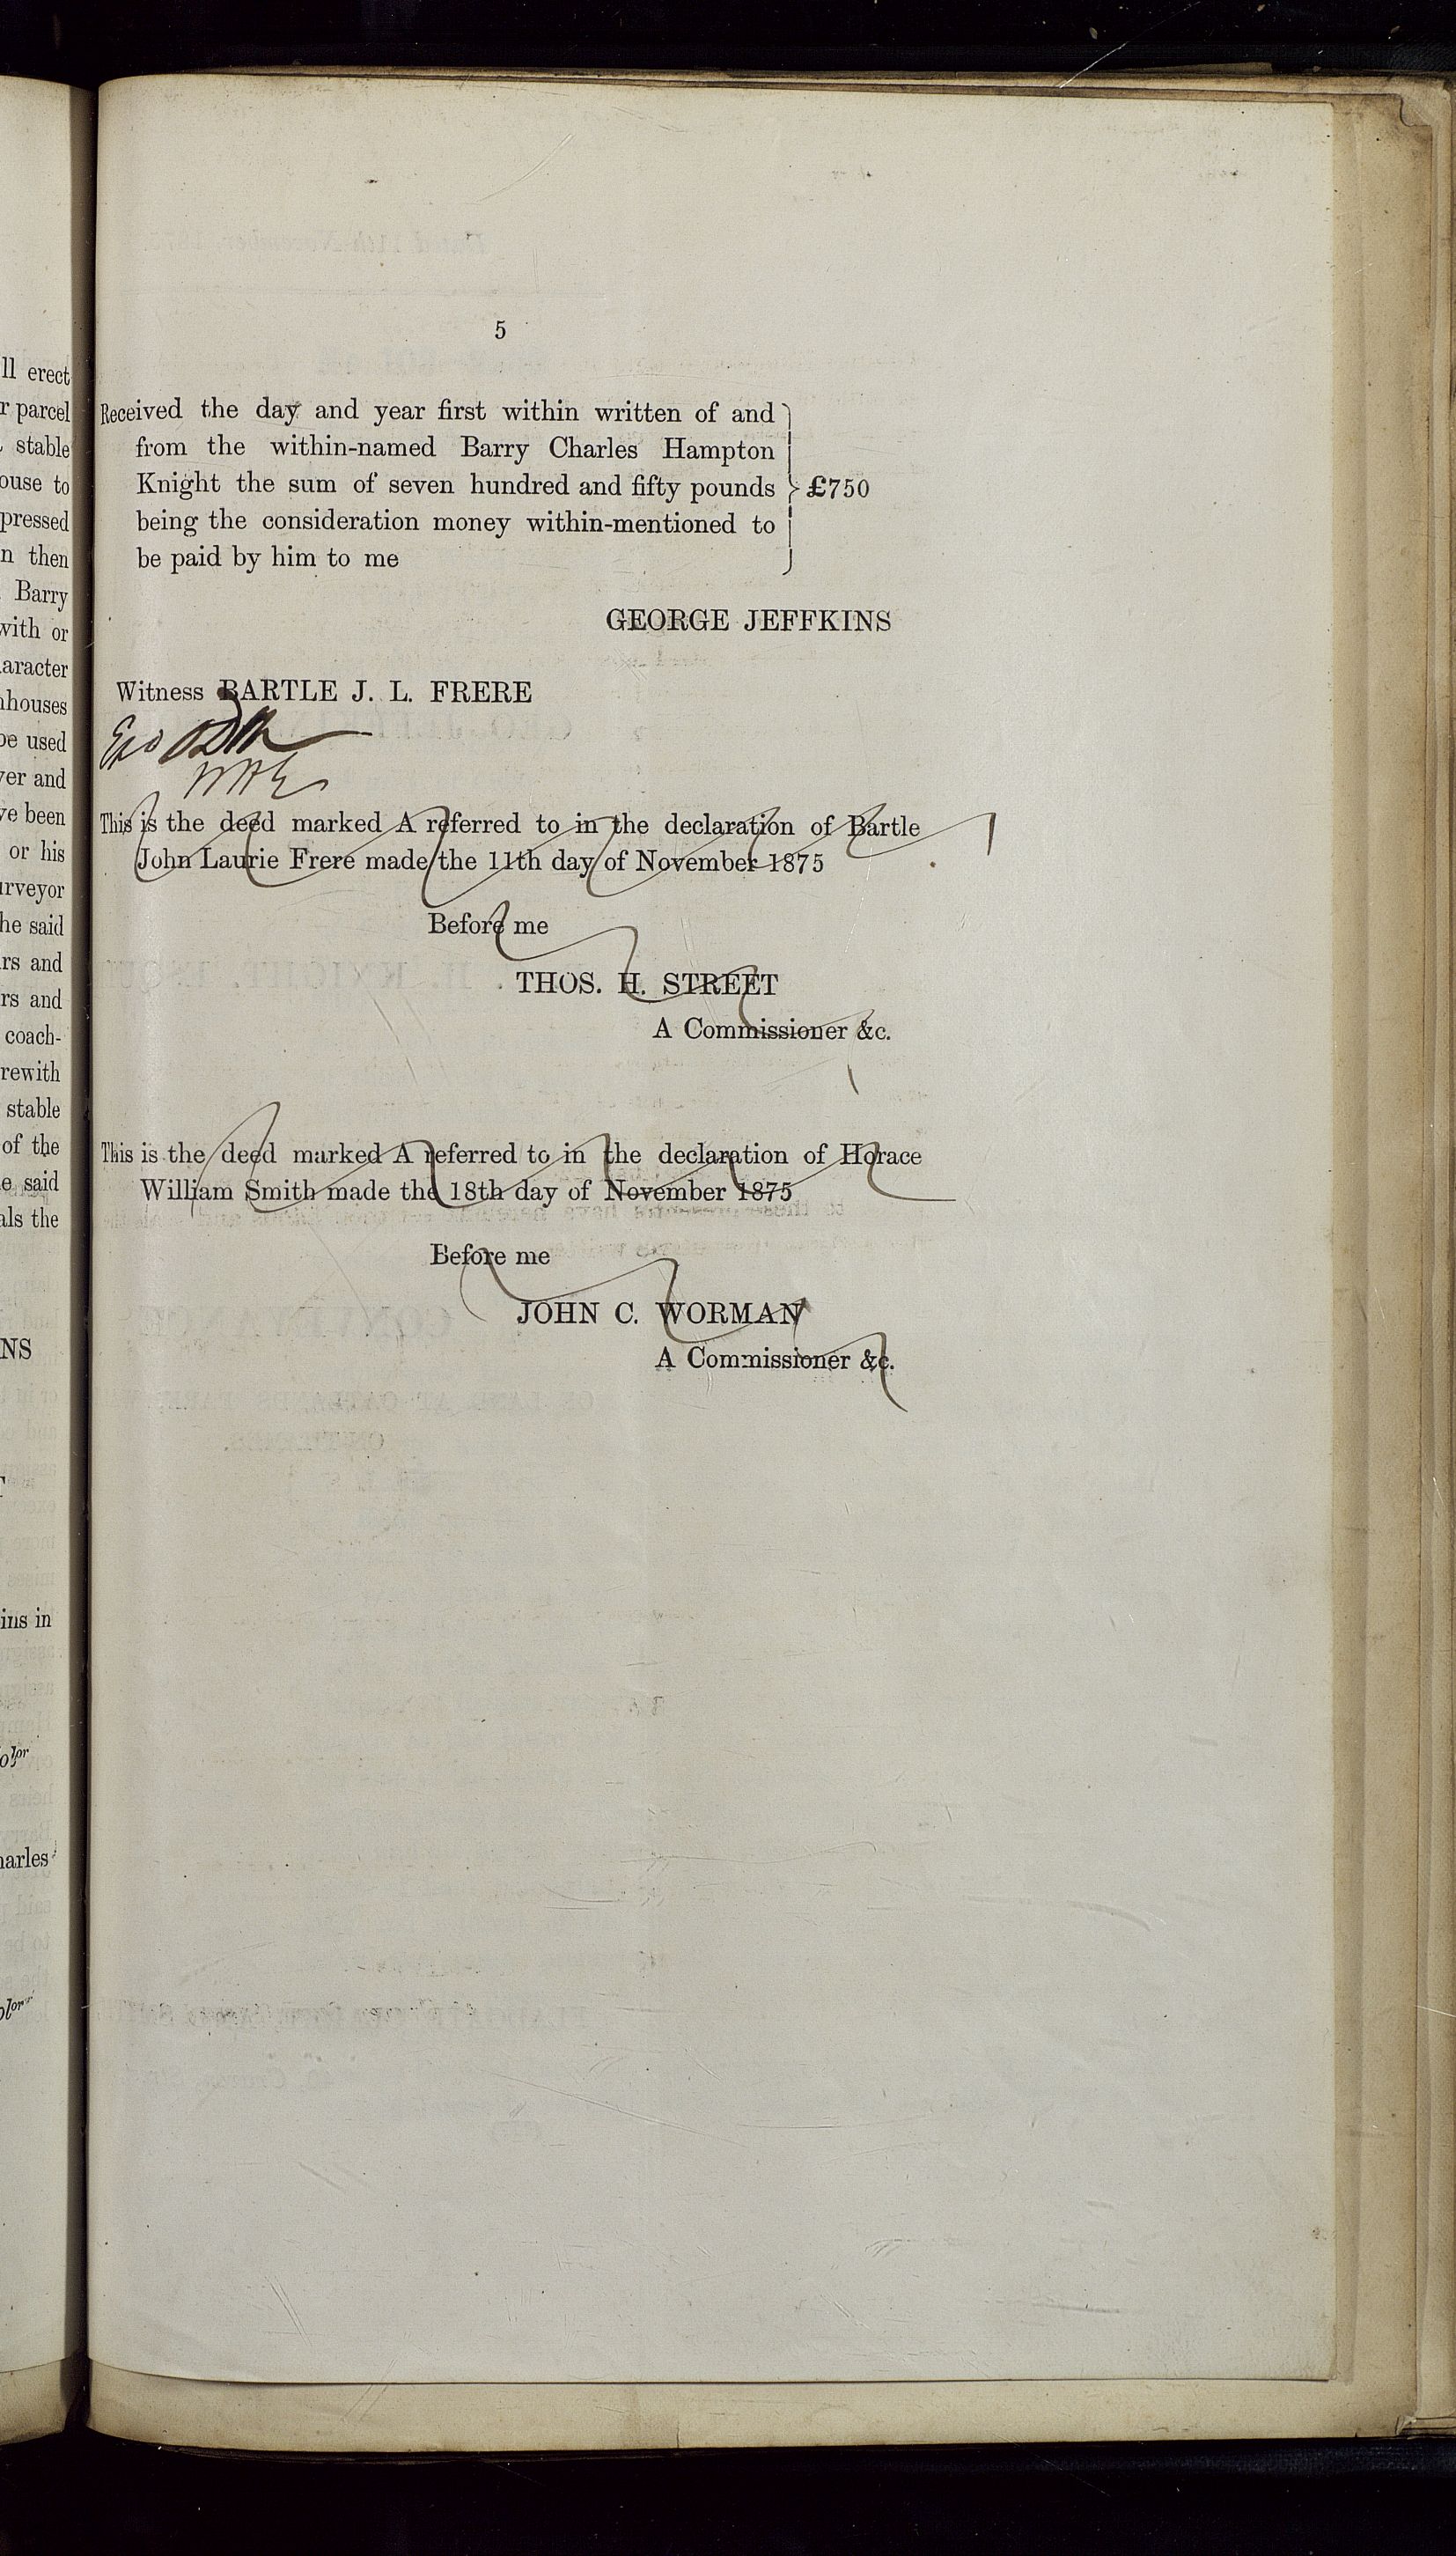 5
Received the day and year first within written of and
from the within-named Barry Charles Hampton
Knight the sum of seven hundred and fifty pounds
£750
being the consideration money within-mentioned to
be paid by him to me
GEORGE JEFFKINS
Witness BARTLE J. L. FRERE
This is the deed marked A referred to in the declaration of Bartle
John Laurie Frere made the 11th day of November 1875
Before me
THOS. H. STREET
A Commissioner &c.
This is the deed marked A referred to in the declaration of Horace
William Smith made the 18th day of November 1875
Before me
JOHN C. WORMAN
A Commissioner &c.
erect
parcel
stable
to
then
Barry
or
used
and
been
or his
said
and
and
coach-
stable
of the
said
the
in